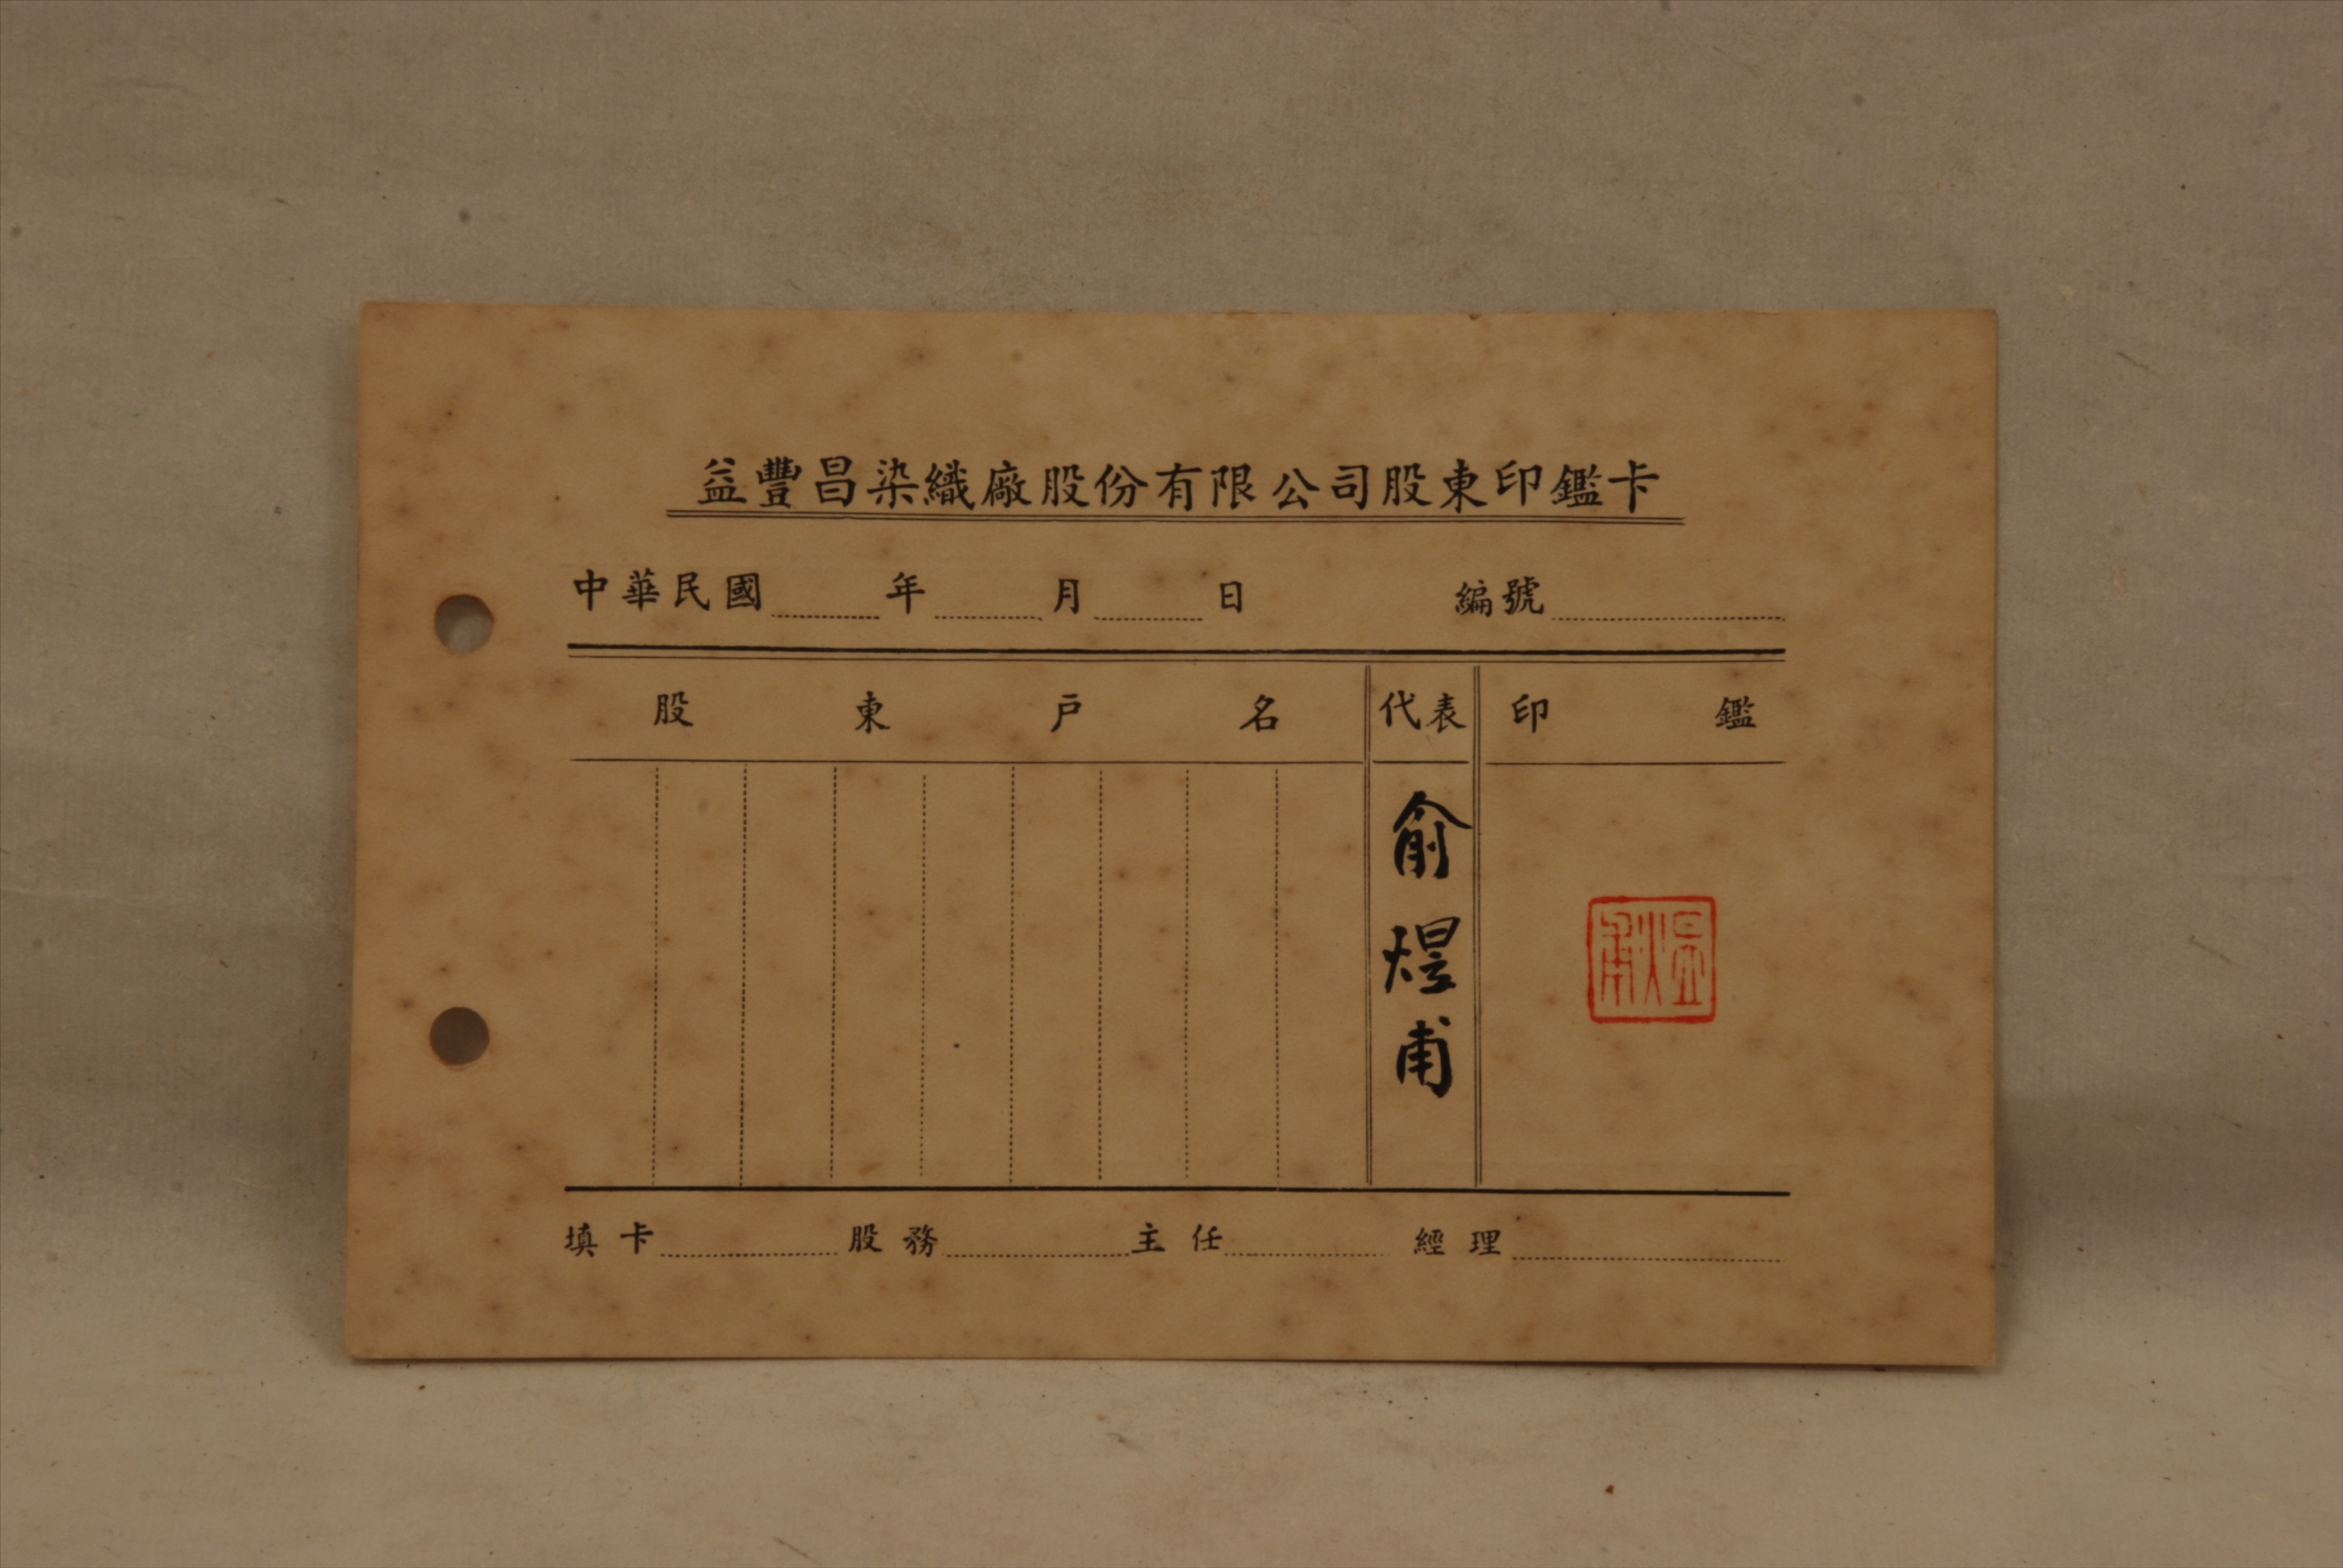 益豐昌染織廠股份有限公司股東印鑑卡
中華民國 年 月 日 編號
股東戶名 代表 印鑑
俞煜甫
填卡 股務 主任 經理